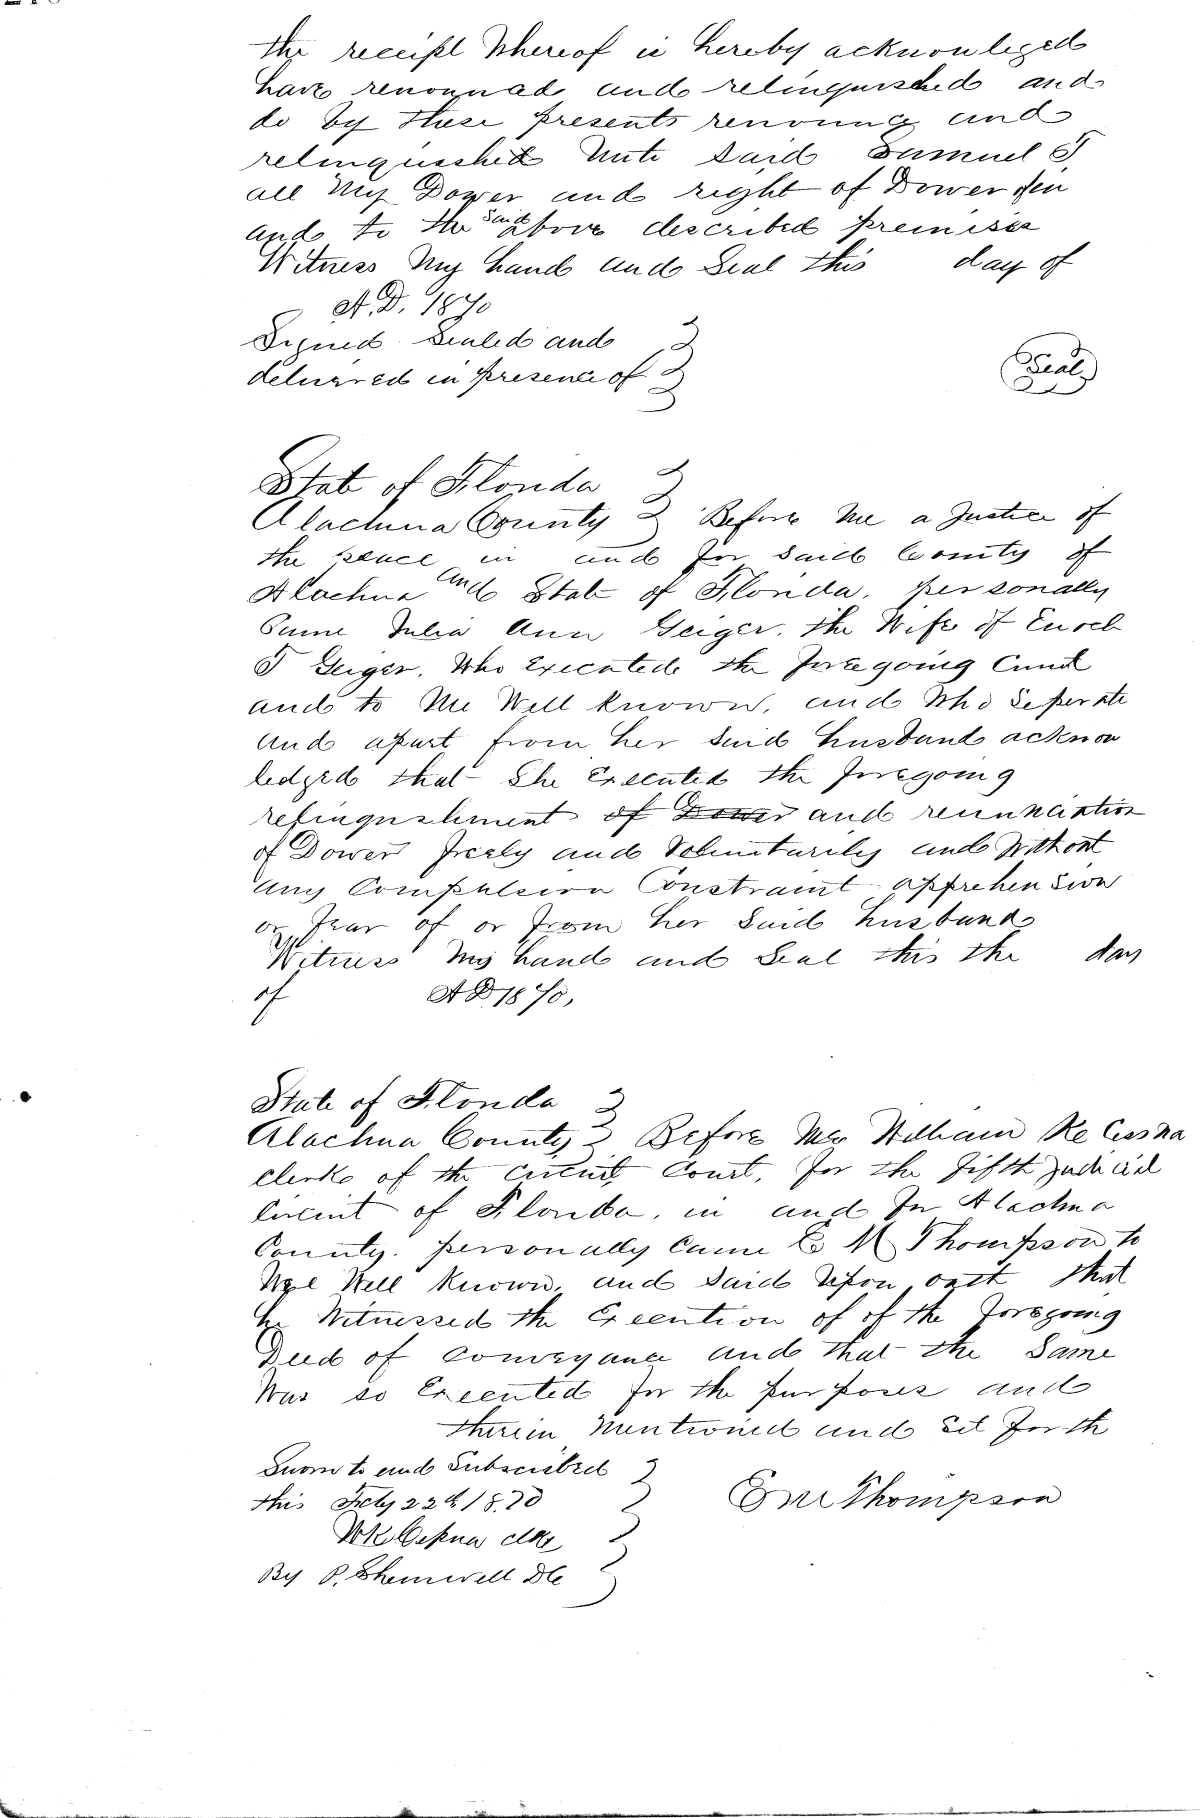 the receipt Whereof is hereby acknowleged
have renounad and relinquished and
do by these presents renounce and
relinquisshed Unto Said Samuel T
all My Dower and right of Dower in
and to the said above described premises
Witness My hand and Seal this day of
A.D. 1870
Signed Sealed and
delivered in presence of
Seal
State of Florida
Alachua County Before Me a Justice of
the peace in and for Said County of
Alachua and State of Florida. personally
Came Julia Ann Geiger. the Wife of Enoch
T Geiger. Who Executed the foregoing
and to Me Well known, and Who Seperate
and apart from her Said husband acknow
ledged that She Executed the foregoing
relinquishment of Dower and renunciation
of Dower freely and Voluntarily and Without
any Compulsion Constraint apprehension
or fear of or from her Said husband
Witness My hand and Seal this the day
of AD 1870,
State of Florida
Alachua County Before Me William K Cessna
clerk of the circuit Court, for the fifth judicial
Circuit of Florida. in and for Alachua
County. personally Came E M Thompson to
Me Well known, and Said Upon oath that
he Witnessed the Execution of of the foregoing
Deed of Conveyance and that the Same
Was so Executed for the purposes and
therein Mentioned and Set forth
Sworn to and Subscribed
this Feby 22d 1870
E M Thompson
WK Cessna clk
By P. Shemwell DC